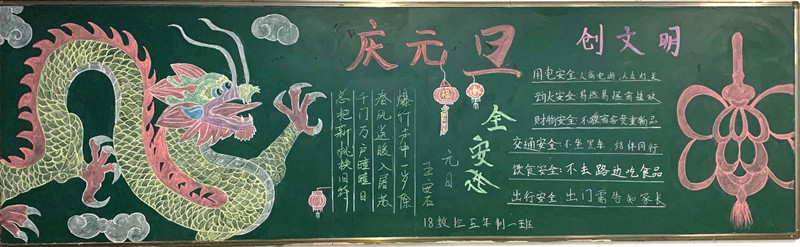 庆元旦
创文明
全安
元日
王安石
爆竹声中一岁除
春风送暖入屠苏
千门万户曈曈日
总把新桃换旧符
用电安全:人离电断,人走灯关
防火安全:易燃易爆需禁放
财物安全:不携带贵重物品
交通安全:不坐黑车、结伴同行
饮食安全:不去路边吃食品
出行安全:出门需告知家长
18数控五年制一班